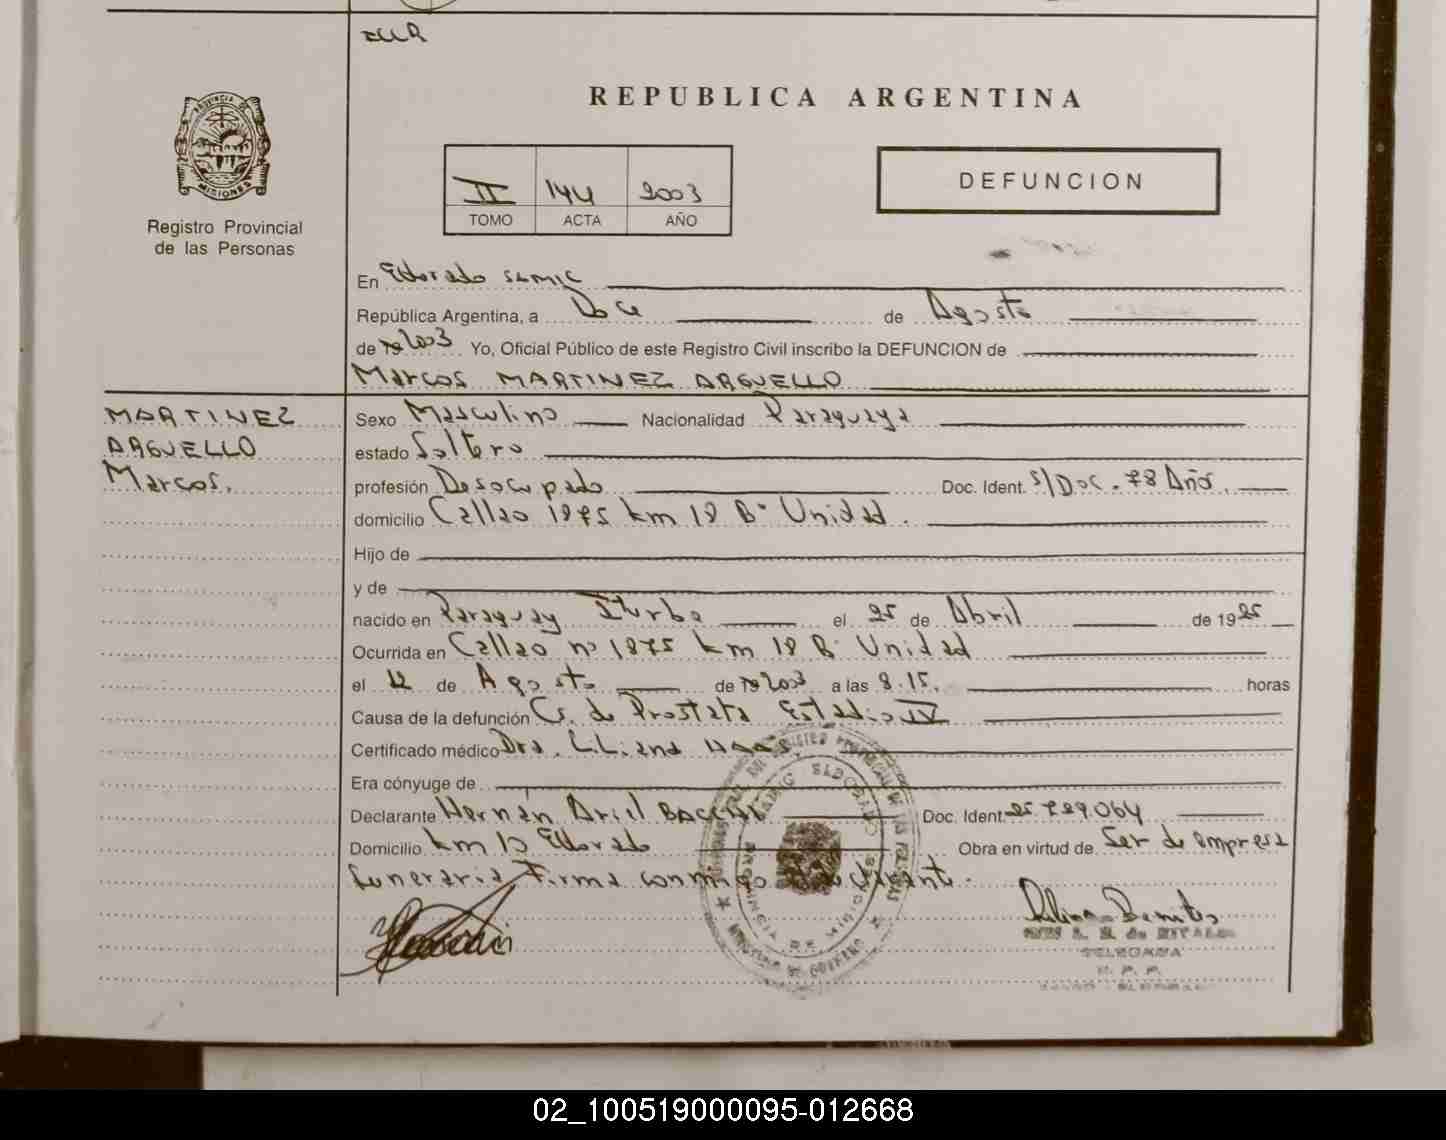 REPUBLICA ARGENTINA
PROVINCIA DE
MISIONES
Registro Provincial
de las Personas
II 144 2003
TOMO ACTA AÑO
DEFUNCION
En Eldorado SAMIC
República Argentina, a Doce de Agosto
de 19 2003 Yo, Oficial Público de este Registro Civil inscribo la DEFUNCION de
Marcos MARTINEZ ARGUELLO
MARTINEZ
ARGUELLO
Marcos.
Sexo Masculino Nacionalidad Paraguaya
estado Soltero
profesión Desocupado Doc. Ident. S/Doc. 78 Años.
domicilio Callao 1875 km 18 Bº Unidad.
Hijo de
y de
nacido en Paraguay Iturbe el 25 de Abril de 1925
Ocurrida en Callao nº 1875 km 18 Bº Unidad
el 12 de Agosto de 19 2003 a las 8.15. horas
Causa de la defunción Ca. de Prostata Estadio IV
Certificado médico Dra. Liliana
Era cónyuge de
Declarante Hernán Ariel Doc. Ident. 25.729.064
Domicilio km 10 Eldorado Obra en virtud de Ser de empresa
funeraria Firma conmigo el declarante.
DELEGADA
02_100519000095-012668